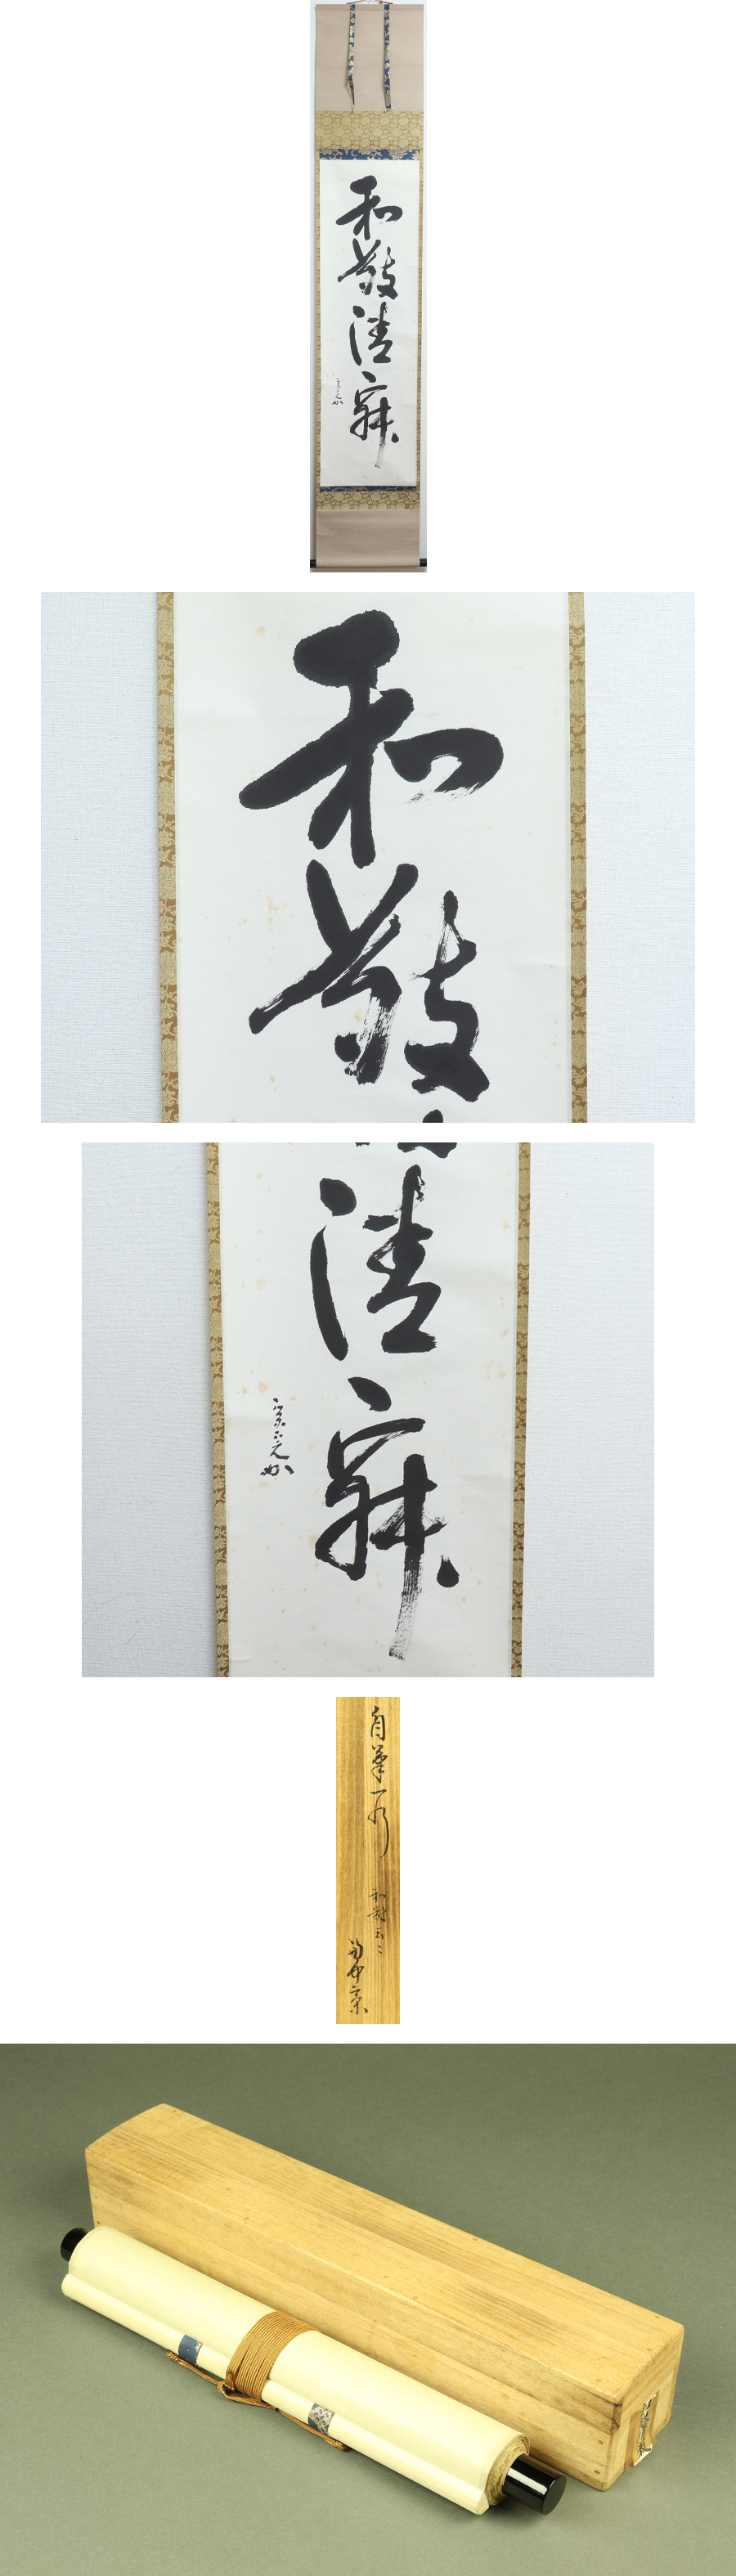 和敬清寂
和敬
清寂
自筆一行
和敬云々